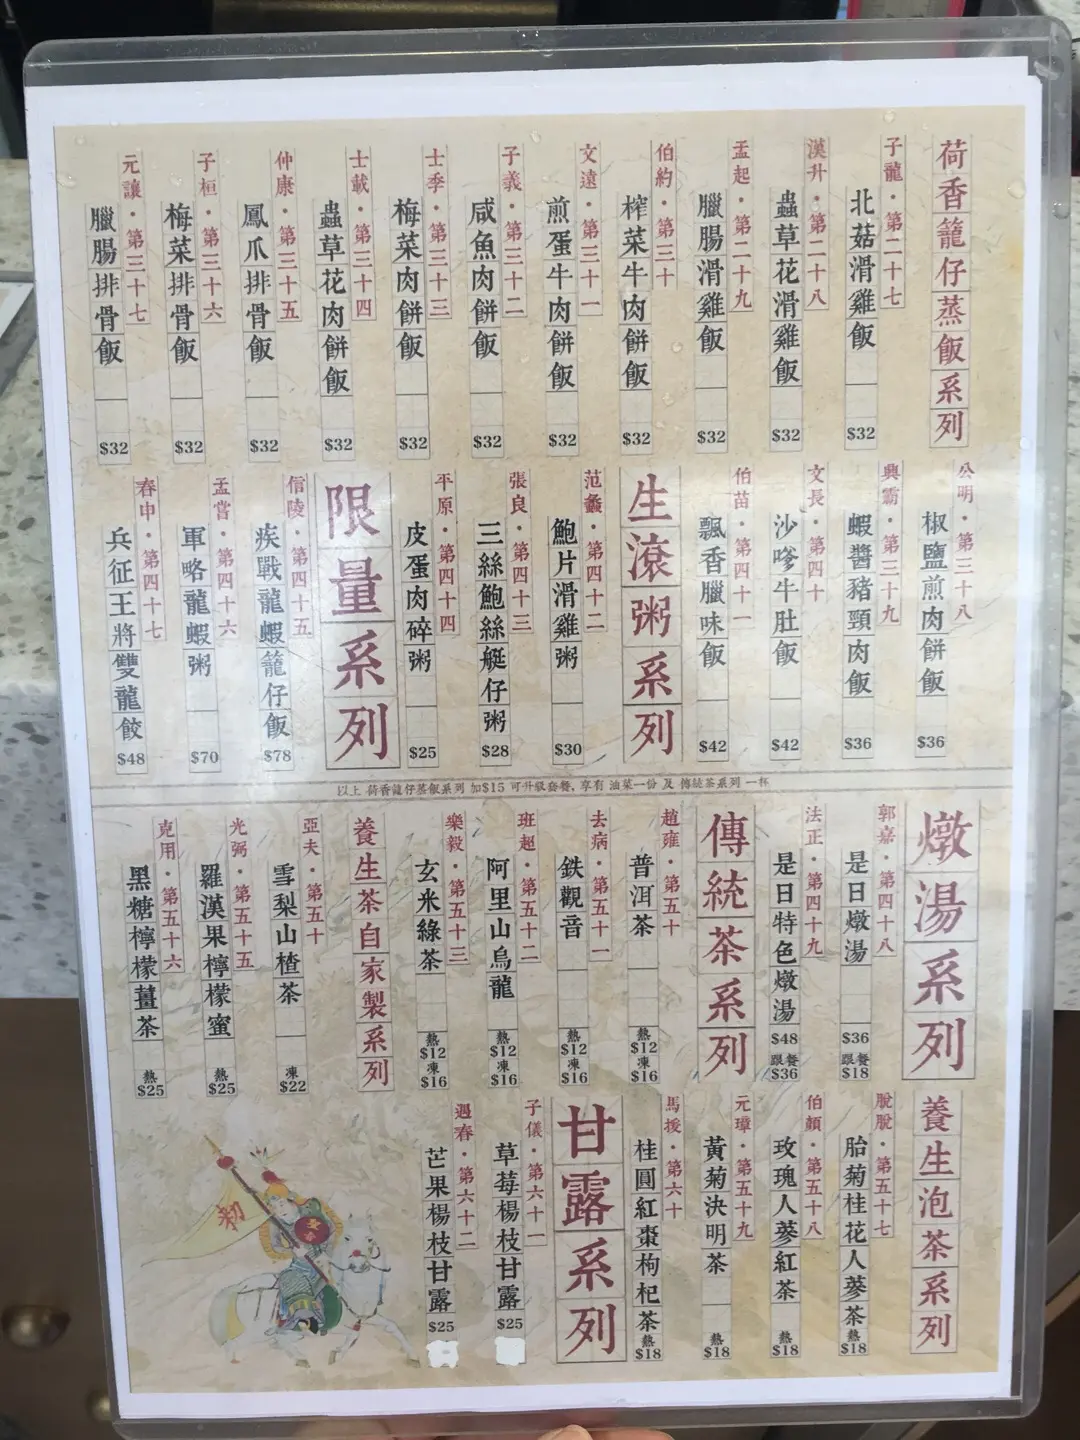 荷香籠仔蒸飯系列
子龍·第二十七
北菇滑雞飯
$32
漢升·第二十八
蟲草花滑雞飯
$32
孟起·第二十九
臘腸滑雞飯
$32
伯約·第三十
榨菜牛肉餅飯
$32
文遠·第三十一
煎蛋牛肉餅飯
$32
子義·第三十二
咸魚肉餅飯
$32
士季·第三十三
梅菜肉餅飯
$32
士載·第三十四
蟲草花肉餅飯
$32
仲康·第三十五
鳳爪排骨飯
$32
子桓·第三十六
梅菜排骨飯
$32
元讓·第三十七
臘腸排骨飯
$32
公明·第三十八
椒鹽煎肉餅飯
$36
興霸·第三十九
蝦醬豬頸肉飯
$36
文長·第四十
沙嗲牛肚飯
$42
伯苗·第四十一
飄香臘味飯
$42
生滾粥系列
范蠡·第四十二
鮑片滑雞粥
$30
張良·第四十三
三絲鮑絲艇仔粥
$28
平原·第四十四
皮蛋肉碎粥
$25
限量系列
信陵·第四十五
疾戰龍蝦籠仔飯
$78
孟嘗·第四十六
軍略龍蝦粥
$70
春申·第四十七
兵征王將雙龍餃
$48
以上 荷香籠仔蒸飯系列 加$15 可升級套餐, 享有 油菜一份 及 傳統茶系列 一杯
燉湯系列
郭嘉·第四十八
是日燉湯
$36
跟餐
$18
法正·第四十九
是日特色燉湯
$48
跟餐
$36
傳統茶系列
趙雍·第五十
普洱茶
熱
$12
凍
$16
去病·第五十一
鉄觀音
熱
$12
凍
$16
班超·第五十二
阿里山烏龍
熱
$12
凍
$16
樂毅·第五十三
玄米綠茶
熱
$12
凍
$16
養生茶自家製系列
亞夫·第五十
雪梨山楂茶
凍
$22
光弼·第五十五
羅漢果檸檬蜜
熱
$25
克用·第五十六
黑糖檸檬薑茶
熱
$25
養生泡茶系列
脫脫·第五十七
胎菊桂花人蔘茶
熱
$18
伯顏·第五十八
玫瑰人蔘紅茶
熱
$18
元璋·第五十九
黃菊決明茶
熱
$18
馬援·第六十
桂圓紅棗枸杞茶
熱
$18
甘露系列
子儀·第六十一
草莓楊枝甘露
$25
遇春·第六十二
芒果楊枝甘露
$25